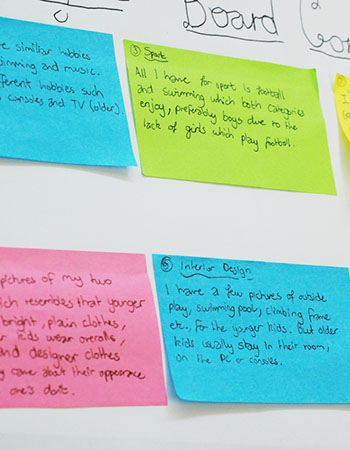 Board
re similiar hobbies
swimming and music.
fferent hobbies such
consoles and TV (older).
③ Sport
All I have for sport is football
and swimming which both categories
enjoy, preferably boys due to the
lack of girls which play football.
pictures of my two
ich resembles that younger
bright, plain clothes,
r kids wear overalls,
and designer clothes
care about their appearance
one's don't.
⑥ Interior Design
I have a few pictures of outside
play, swimming pools, climbing frame
etc., for the younger kids. But older
kids usually stay in their room,
on the PC or consoles.